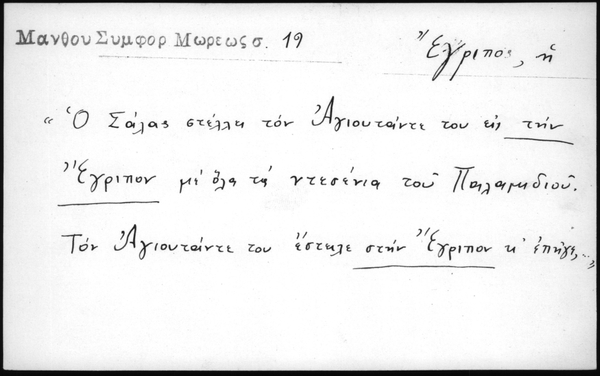 Μανθου Συμφορ Μωρεως σ. 19
Ἔγριπος, ἡ
« Ὁ Σάλας στέλλει τόν Ἀγιουτάντε του εἰς τήν
Ἔγριπον μέ ὅλα τά ντεσένια τοῦ Παλαμιδιοῦ.
Τόν Ἀγιουτάντε του ἔστειλε στήν Ἔγριπον κι' ἐπῆγε,..»